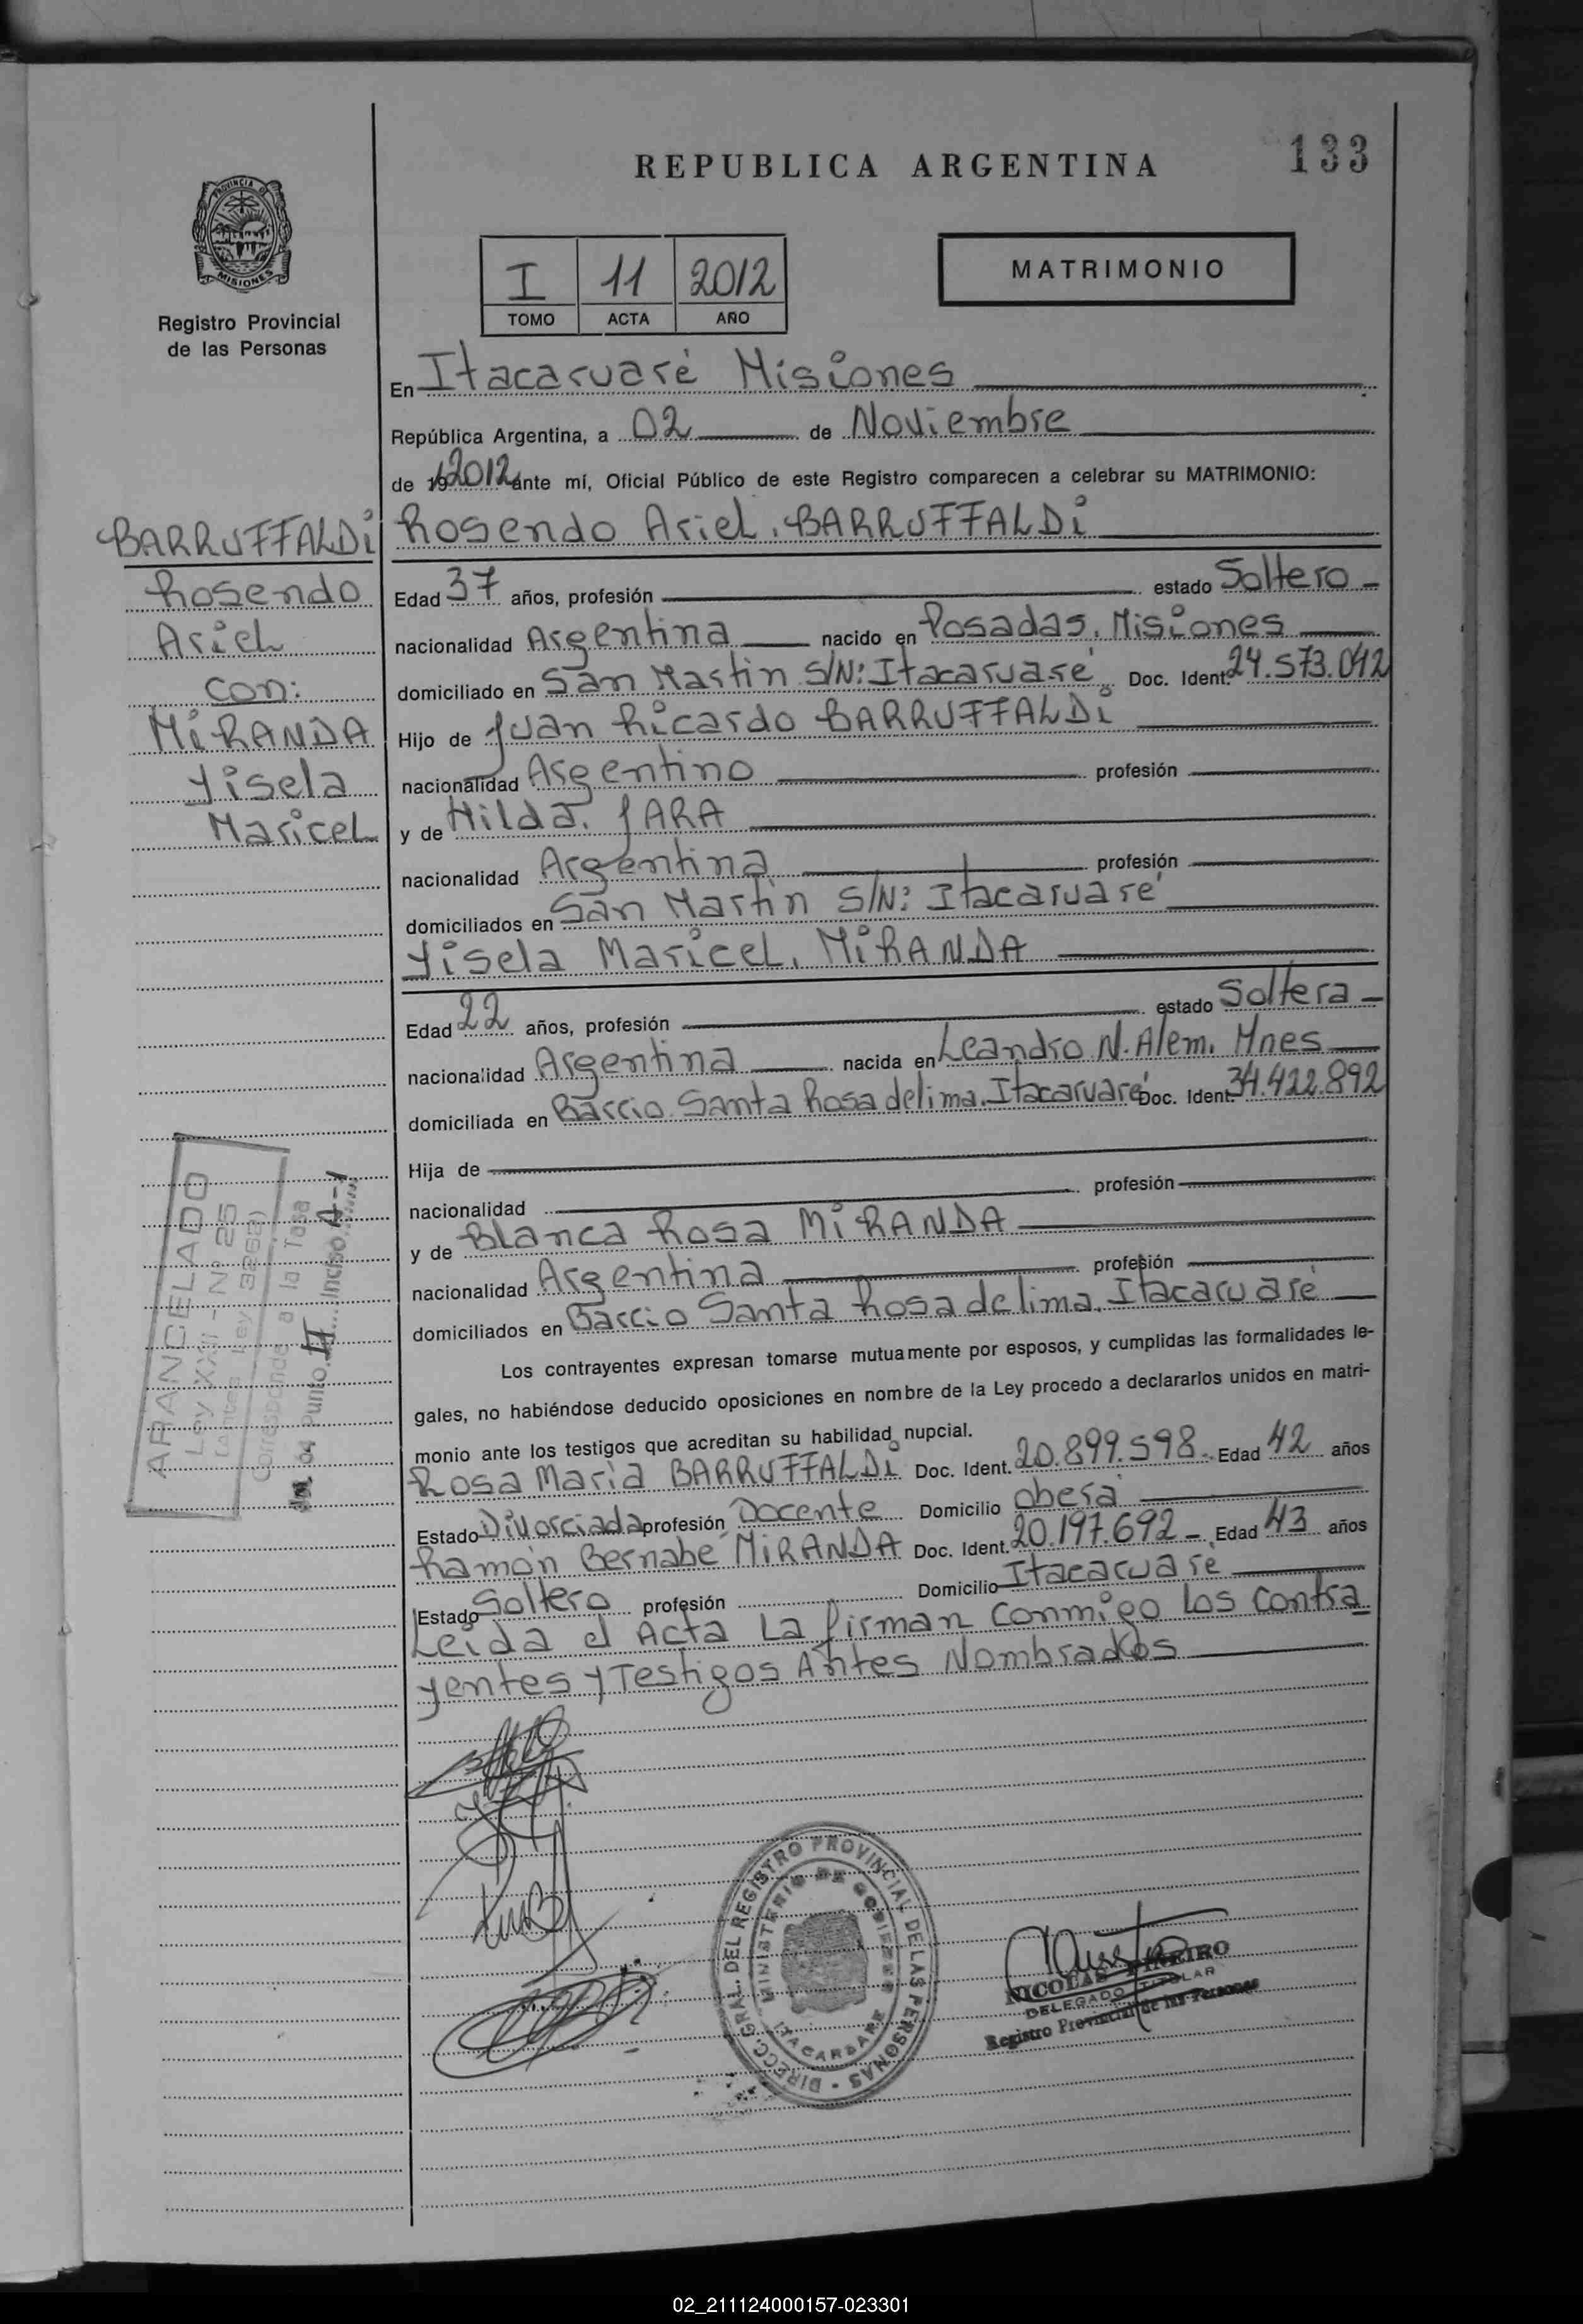 REPUBLICA ARGENTINA
133
PROVINCIA DE
MISIONES
Registro Provincial
de las Personas
I 11 2012
TOMO ACTA AÑO
MATRIMONIO
En Itacaruaré Misiones
República Argentina, a 02 de Noviembre
de 19 2012 ante mí, Oficial Público de este Registro comparecen a celebrar su MATRIMONIO:
BARRUFFALDi
Rosendo
Ariel
con:
MiRANDA
Yisela
Maricel
Rosendo Ariel, BARRUFFALDi
Edad 37 años, profesión estado Soltero
nacionalidad Argentina nacido en Posadas, Misiones
domiciliado en San Martin S/N: Itacaruaré Doc. Ident. 24.573.042
Hijo de Juan Ricardo BARRUFFALDi
nacionalidad Argentino profesión
y de Hilda, JARA
nacionalidad Argentina profesión
domiciliados en San Martin S/N: Itacaruaré
Yisela Maricel, MiRANDA
Edad 22 años, profesión estado Soltera
nacionalidad Argentina nacida en Leandro N. Alem, Mnes
domiciliada en Barrio Santa Rosa de lima, Itacaruaré Doc. Ident. 34.422.892
Hija de
nacionalidad profesión
y de Blanca Rosa MiRANDA
nacionalidad Argentina profesión
domiciliados en Barrio Santa Rosa de lima, Itacaruaré
Los contrayentes expresan tomarse mutuamente por esposos, y cumplidas las formalidades le-
gales, no habiéndose deducido oposiciones en nombre de la Ley procedo a declararlos unidos en matri-
monio ante los testigos que acreditan su habilidad nupcial.
Rosa Maria BARRUFFALDi Doc. Ident. 20.899.598 Edad 42 años
Estado Divorciada profesión Docente Domicilio obera
Ramón Bernabe MiRANDA Doc. Ident. 20.197.692 Edad 43 años
Estado Soltero profesión Domicilio Itacaruare
Leida el Acta La firman conmigo los contra
yentes y Testigos Antes Nombrados
ARANCELADO
Ley XXII - Nº 25
(antes Ley 3262)
Corresponde a la Tasa
04 Punto II Inciso A-1
DIRECC. GRAL. DEL REGISTRO PROVINCIAL DE LAS PERSONAS
MINISTERIO DE GOBIERNO
ITACARUARE
NICOLAS
DELEGADO TITULAR
Registro Provincial de las Personas
02_211124000157-023301